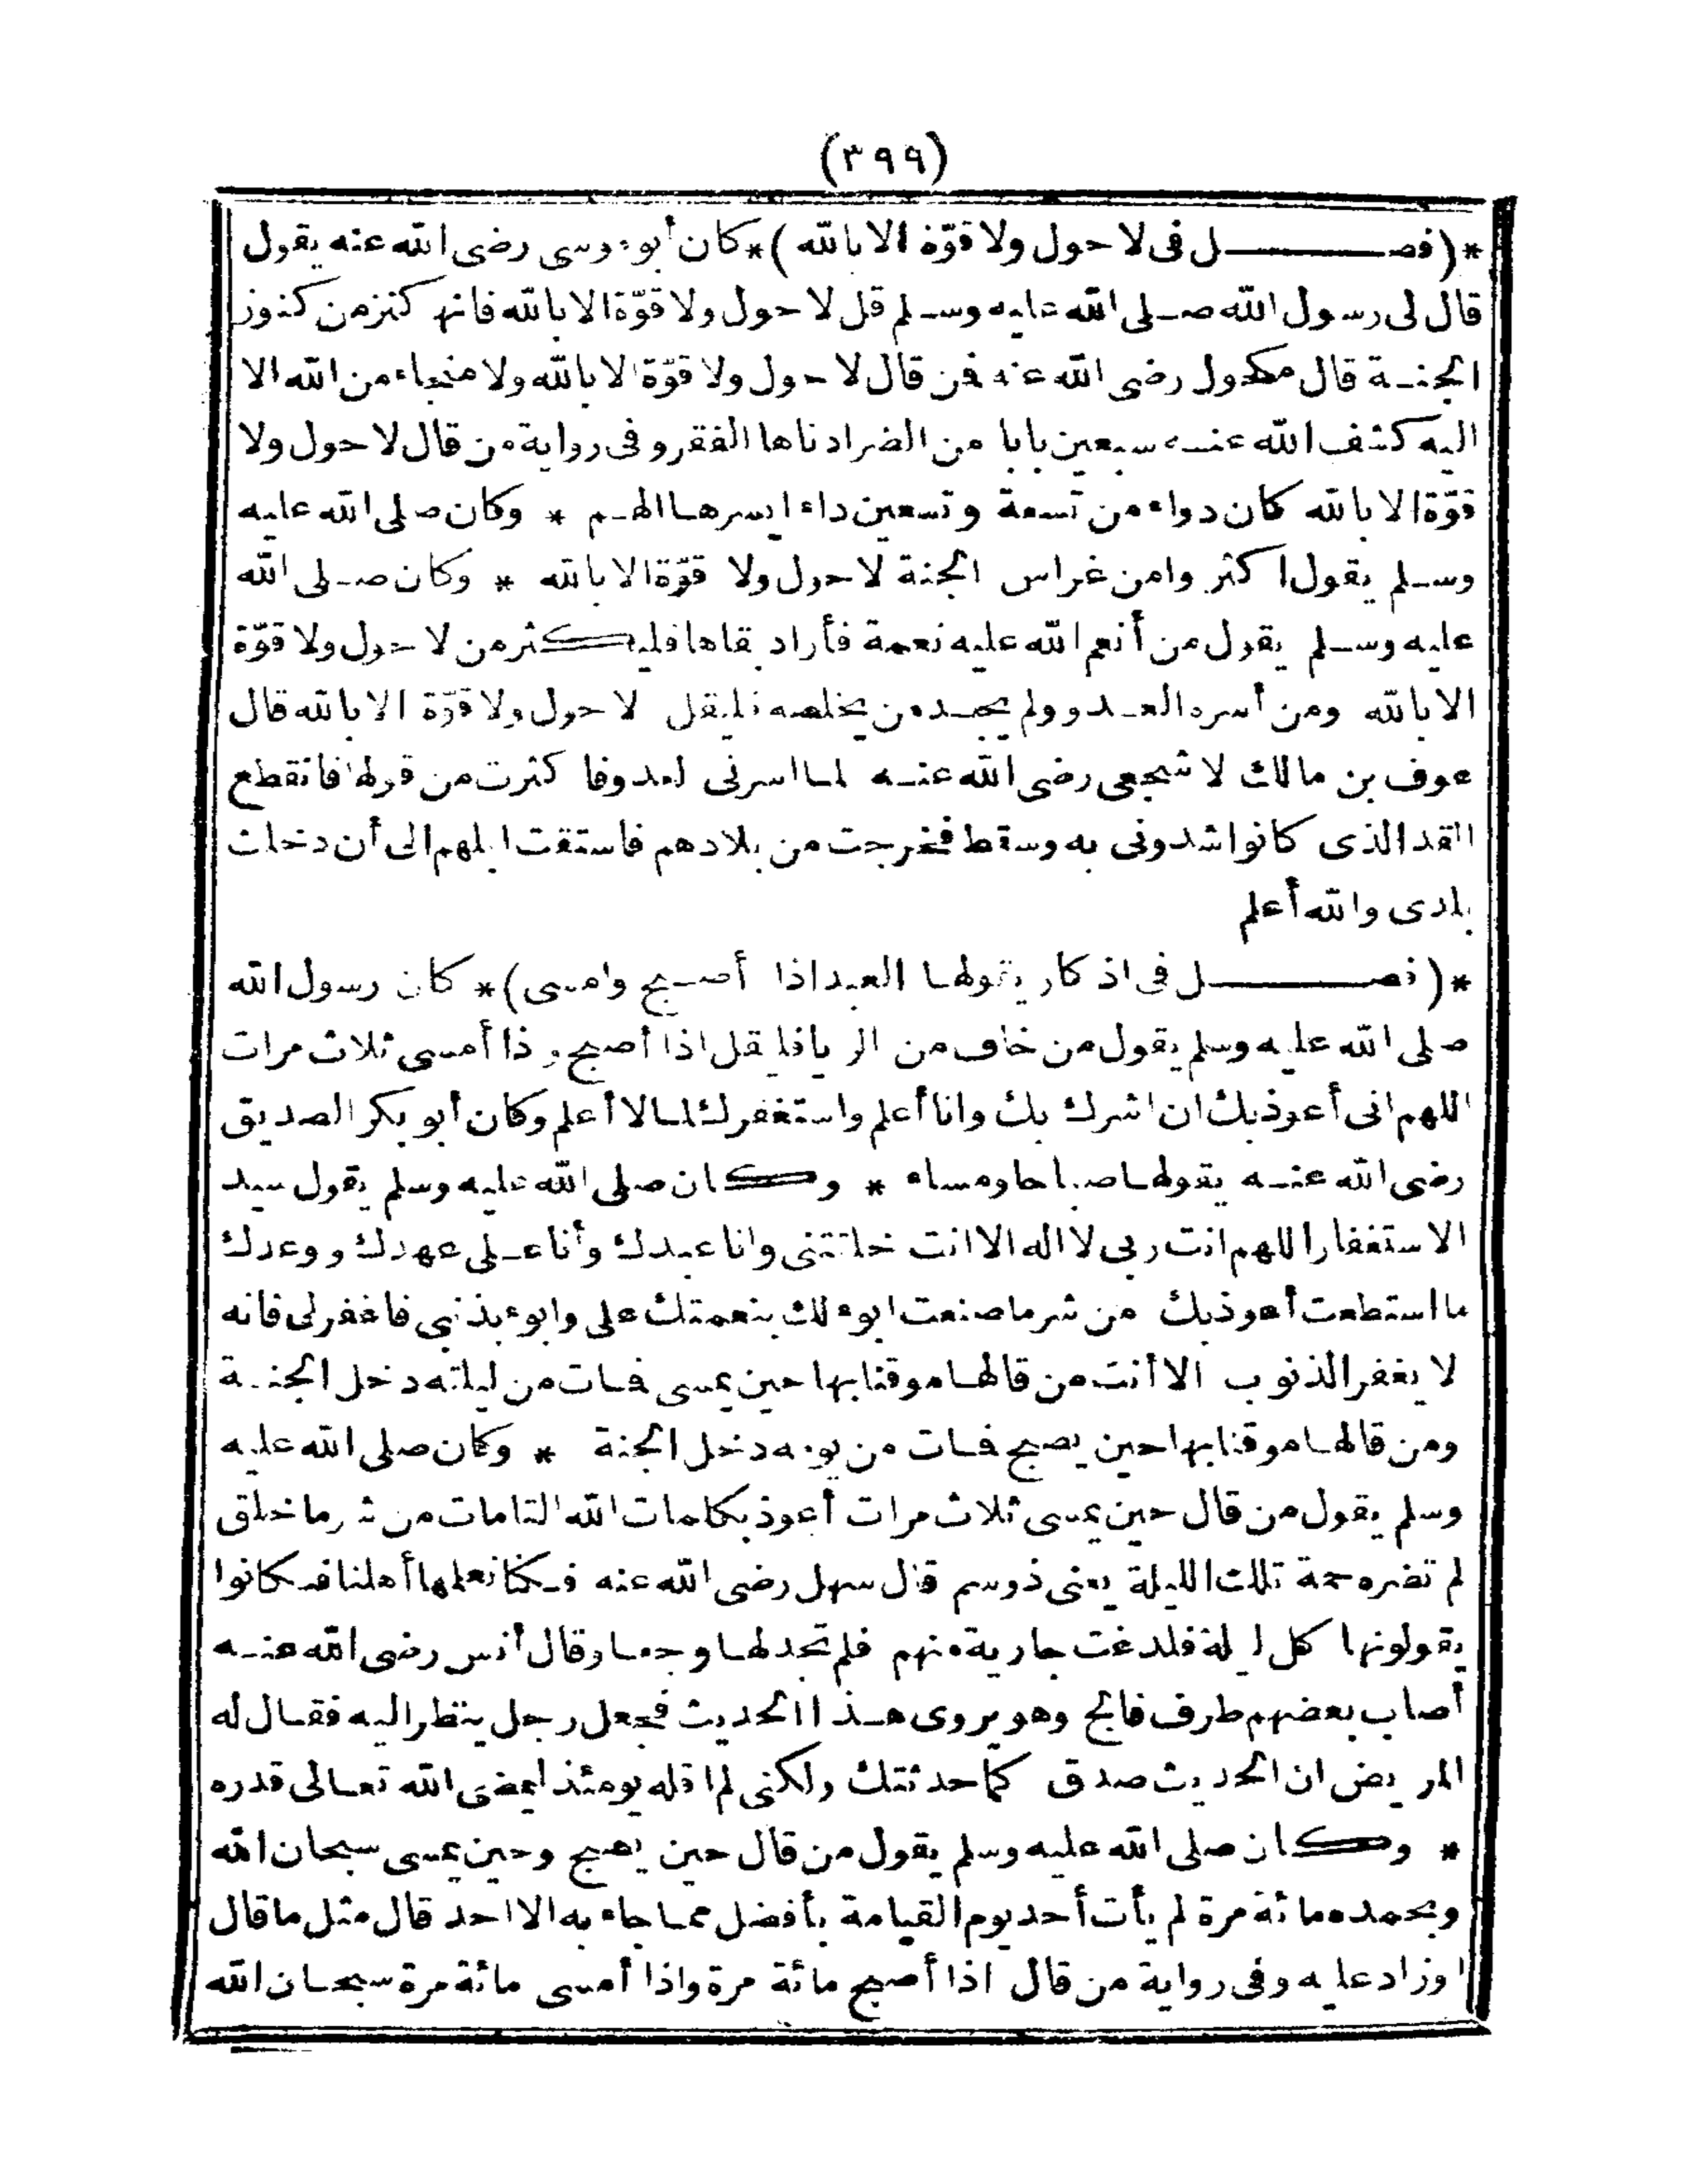 (٣٩٩)
*(فصـــــــل فى لا حول ولا قوّة الا بالله)* كان أبوموسى رضى الله عنه يقول
قال لى رسول الله صلى الله عليه وسلم قل لا حول ولا قوّة الا بالله فانها كنز من كنوز
الجنة قال مكحول رضى الله عنه فمن قال لا حول ولا قوّة الا بالله ولا منجاء من الله الا
اليه كشف الله عنه سبعين بابا من الضر ادناها الفقر وفى رواية من قال لا حول ولا
قوّة الا بالله كان دواء من تسعة وتسعين داء ايسرها الهم * وكان صلى الله عليه
وسلم يقول اكثر وامن غراس الجنة لا حول ولا قوّة الا بالله * وكان صلى الله
عليه وسلم يقول من أنعم الله عليه نعمة فأراد بقاها فليكثر من لا حول ولا قوّة
الا بالله ومن أسره العدو ولم يجد من يخلصه فليقل لا حول ولا قوّة الا بالله قال
عوف بن مالك لاشجعى رضى الله عنه لما اسرنى لعدو فا كثرت من قولها فانقطع
القد الذى كانوا شدونى به وسقط فخرجت من بلادهم فاستقت ابلهم الى أن دخلت
بلادى والله أعلم
*(فصـــــــل فى اذكار يقولها العبد اذا أصبح وامسى)* كان رسول الله
صلى الله عليه وسلم يقول من خاف من الريا فليقل اذا أصبح وذا أمسى ثلاث مرات
اللهم انى أعوذبك ان اشرك بك وانا أعلم واستغفرك لما لا أعلم وكان أبو بكر الصديق
رضى الله عنه يقولها صباحا ومساء * وكان صلى الله عليه وسلم يقول سيد
الاستغفار اللهم انت ربى لا اله الا انت خلقتنى وانا عبدك وأنا على عهدك ووعدك
ما استطعت أعوذبك من شر ما صنعت ابوء لك بنعمتك على وابوء بذنبى فاغفر لى فانه
لا يغفر الذنوب الا أنت من قالها موقنا بها حين يمسى فمات من ليلته دخل الجنة
ومن قالها موقنا بها حين يصبح فمات من يومه دخل الجنة * وكان صلى الله عليه
وسلم يقول من قال حين يمسى ثلاث مرات أعوذ بكلمات الله التامات من شر ما خلق
لم تضره حمة تلك الليلة يعنى ذوسم قال سهل رضى الله عنه فكنا نعلمها أهلنا فكانوا
يقولونها كل ليلة فلدغت جارية منهم فلم تجد لها وجعا وقال أنس رضى الله عنه
أصاب بعضهم طرف فالج وهو يروى هذا الحديث فجعل رجل ينظر اليه فقال له
المريض ان الحديث صدق كما حدثتك ولكنى لم اقله يومئذ ليمضى الله تعالى قدره
* وكان صلى الله عليه وسلم يقول من قال حين يصبح وحين يمسى سبحان الله
وبحمده مائة مرة لم يأت أحد يوم القيامة بأفضل مما جاء به الا احد قال مثل ما قال
اوزاد عليه وفى رواية من قال اذا أصبح مائة مرة واذا أمسى مائة مرة سبحان الله